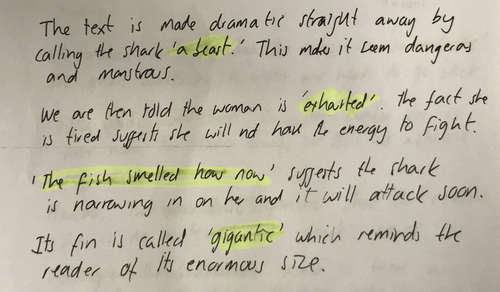 The text is made dramatic straight away by
calling the shark 'a beast.' This makes it seem dangerous
and monstrous.
We are then told the woman is 'exhausted'. The fact she
is tired suggests she will not have the energy to fight.
'The fish smelled her now' suggests the shark
is narrowing in on her and it will attack soon.
Its fin is called 'gigantic' which reminds the
reader of its enormous size.